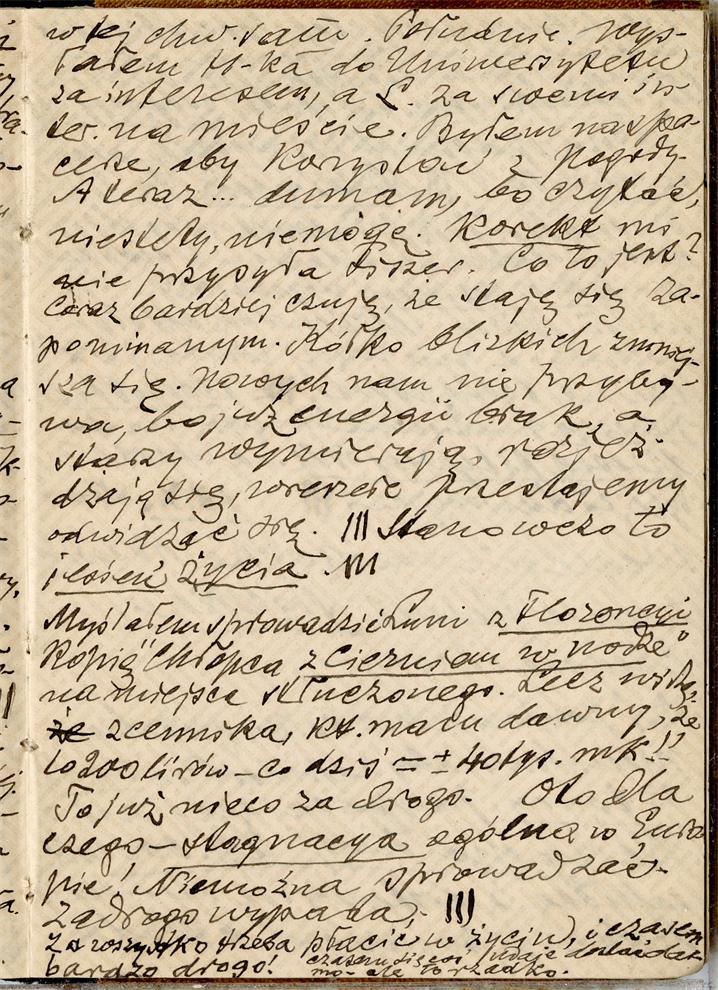 w tej chw. sam. Południe. Wys-
łałem H-ka do Uniwersytetu
za interesem, a L. za swemi in-
ter. na mieście. Byłem na spa-
cerze, aby korzystać z pogody.
A teraz... dumam, bo czytać,
niestety, nie mogę. Korekt mi
nie przysyła Fiszer. Co to jest?
Coraz bardziej czuję, że staję się za-
pominanym. Kółko blizkich zmniej-
sza się. Nowych nam nie przyby-
wa, bo już energii brak, a
starzy wymierają, rozjeż-
dzają się, wreszcie przestajemy
odwidzać się. III Stanowczo to
jesień życia. III
Myślałem sprowadzić Luni z Florencyi
kopię "Chłopca z Cierniem w nodze"
na miejsce stłuczonego. Lecz widzę
że z cennika, kt. mam dawny, że
to 200 lirów – co dziś = ± 40 tys. mk!!
To już nieco za drogo. Oto dla
czego – stagnacya ogólna w Euro
pie! Niemożna sprowadzać.
Zadrogo wypada. III
Za wszystko trzeba płacić w życiu, i czasem
bardzo drogo! czasem się coś udaje dostać dar
mo- ale to rzadko.